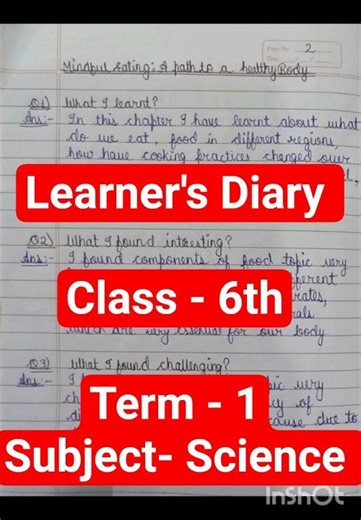 Page No. 2
Date
Mindful Eating: A path to a healthy Body
Q1) What I learnt?
Ans:- In this chapter I have learnt about what
do we eat, food in different regions,
how have cooking practices changed our
Learner's Diary
Q2) What I found interesting?
Ans:- I found components of food topic very
Class - 6th
which are very essential for our body
Q3) What I found challenging?
Ans:- I
Term - 1
Subject- Science
InShOt